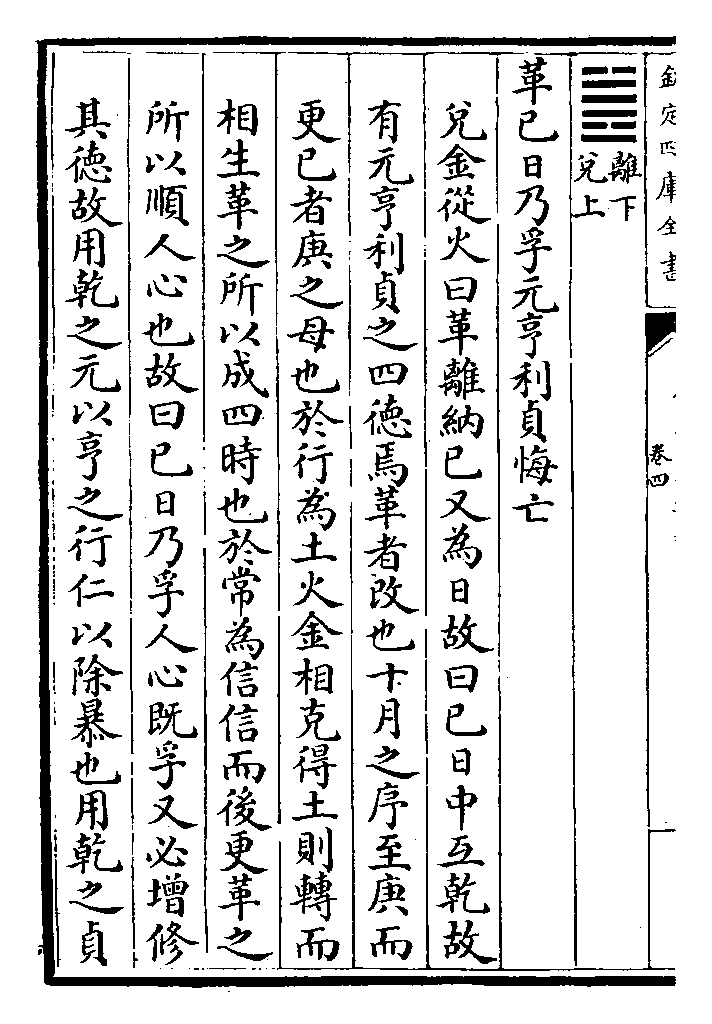 欽定四庫全書
卷四
離下
兌上
革已日乃孚元亨利貞悔亡
兌金從火曰革離納已又為日故曰已日中互乾故
有元亨利貞之四德焉革者改也十月之序至庚而
更已者庚之母也於行為土火金相克得土則轉而
相生革之所以成四時也於常為信信而後更革之
所以順人心也故曰已日乃孚人心既孚又必增修
其德故用乾之元以亨之行仁以除暴也用乾之貞